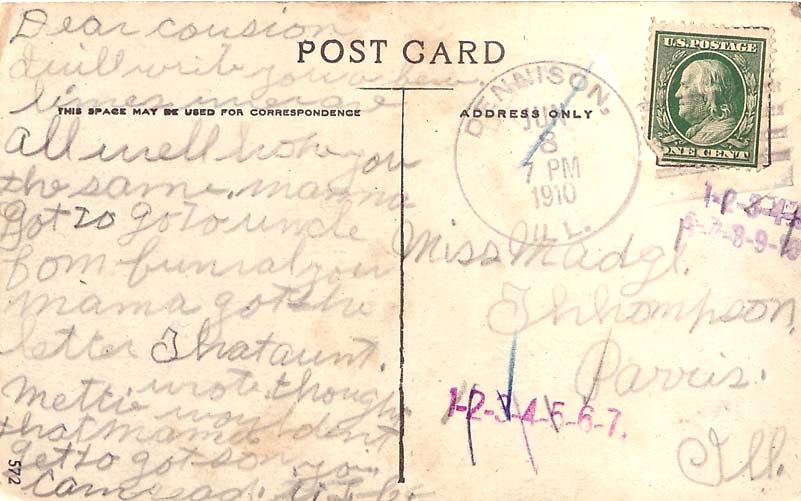 Dear cousion
I will write you a few
lines we are
all well hope you
the same. mamma
got to go to uncle
fom funral your
mama got the
letter That aunt.
Mettie wrote. though
that mama don't
get to got so
you can
POST CARD
THIS SPACE MAY BE USED FOR CORRESPONDENCE
ADDRESS ONLY
DENNISON,
JUN
8
7 PM
1910
ILL.
U.S. POSTAGE
ONE CENT
1-2-3-4-5
6-7-8-9-10
Miss Madgl.
Thhompson,
Parris.
Ill.
1-2-3-4-5-6-7.
572